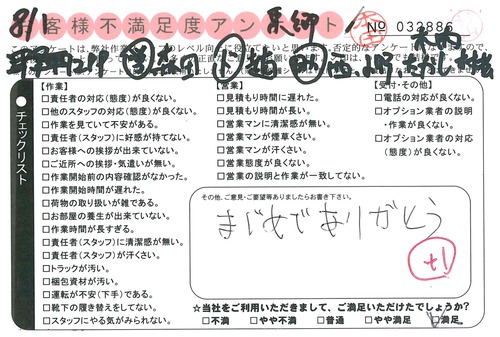 8/1
お客様不満足度アンケート
No 032886
【作業】
□責任者の対応(態度)が良くない。
□他のスタッフの対応(態度)が良くない。
□作業を見ていて不安がある。
□責任者(スタッフ)に好感が持てない。
□お客様への挨拶が出来ていない。
□ご近所への挨拶・気遣いが無い。
□作業開始前の内容確認がなかった。
□作業開始時間が遅れた。
□荷物の取り扱いが雑である。
□お部屋の養生が出来ていない。
□作業時間が長すぎる。
□責任者(スタッフ)に清潔感が無い。
□責任者(スタッフ)が汗くさい。
□トラックが汚い。
□梱包資材が汚い。
□運転が不安(下手)である。
□靴下の履き替えをしてない。
□スタッフにやる気がみられない。
【営業】
□見積もり時間に遅れた。
□見積もり時間が長い。
□営業マンに清潔感が無い。
□営業マンが煙草くさい。
□営業マンが汗くさい。
□営業態度が良くない。
□営業の説明と作業が一致してない。
【受付・その他】
□電話の対応が良くない。
□オプション業者の説明
・作業が良くない。
□オプション業者の対応
(態度)が良くない。
チェックリスト
その他、ご意見・ご要望等ありましたらお書き下さい。
まじめでありがとう
☆当社をご利用いただきまして、ご満足いただけたでしょうか?
□不満 □やや不満 □普通 □やや満足 □満足